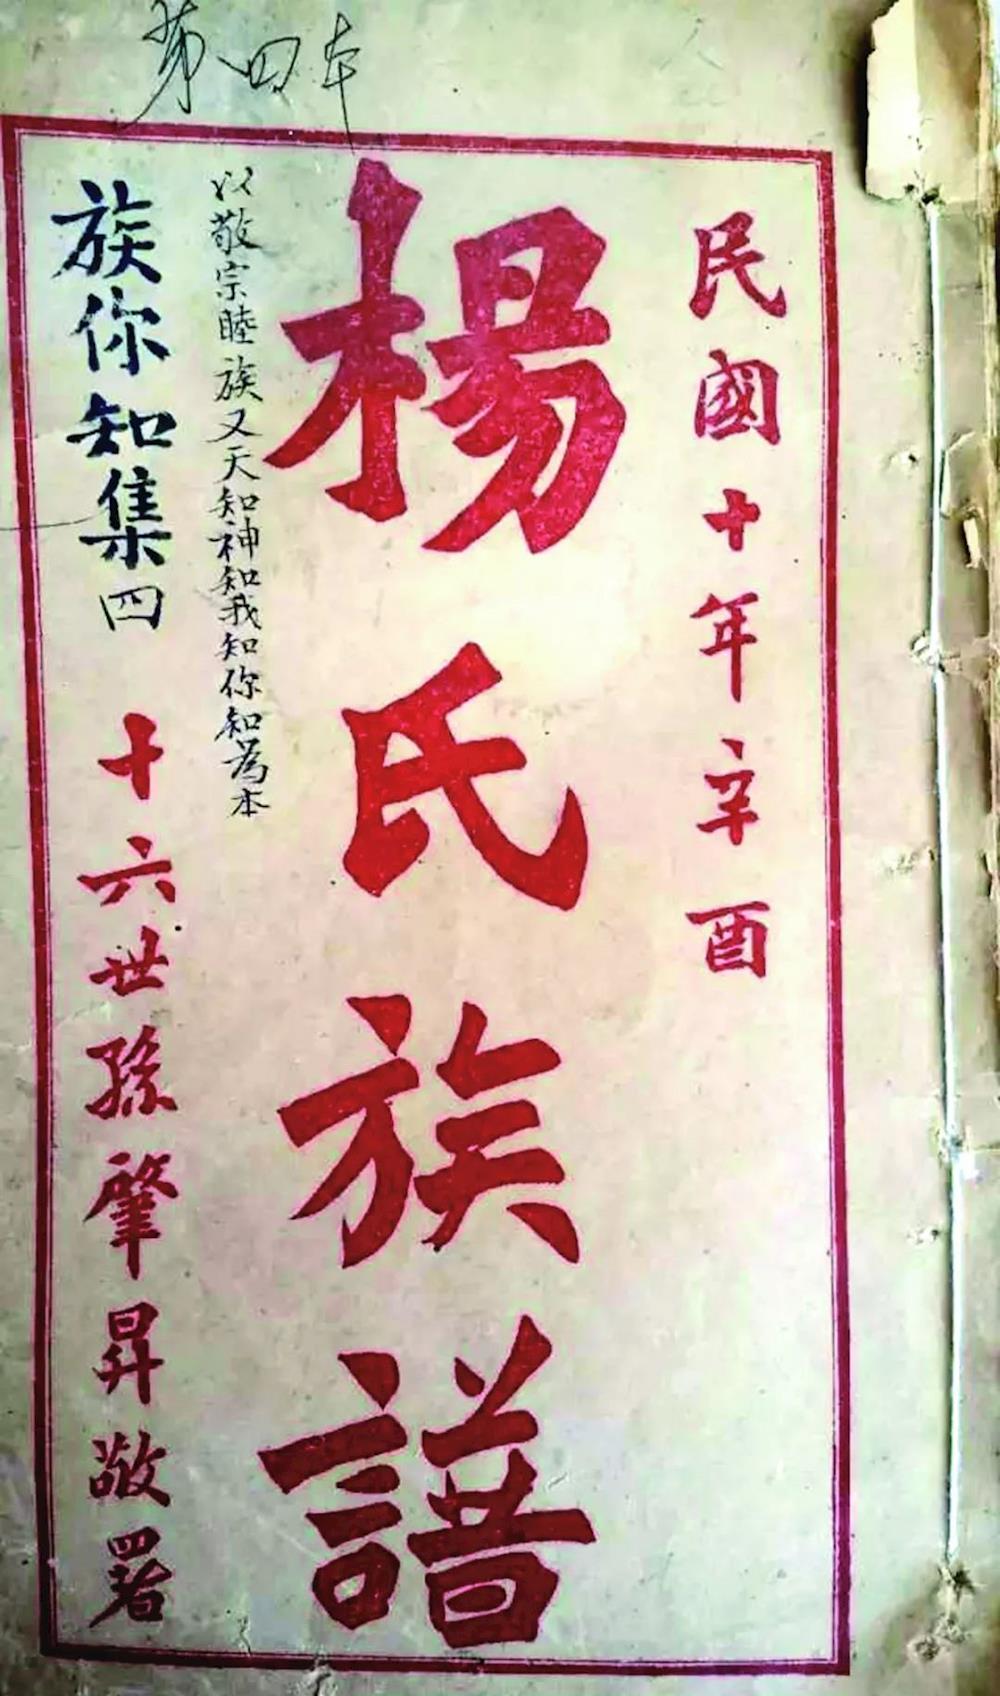 第四本
民國十年辛酉
楊氏族譜
以敬宗睦族又天知神知我知你知為本
族你知集四
十六世孫肇昇敬署